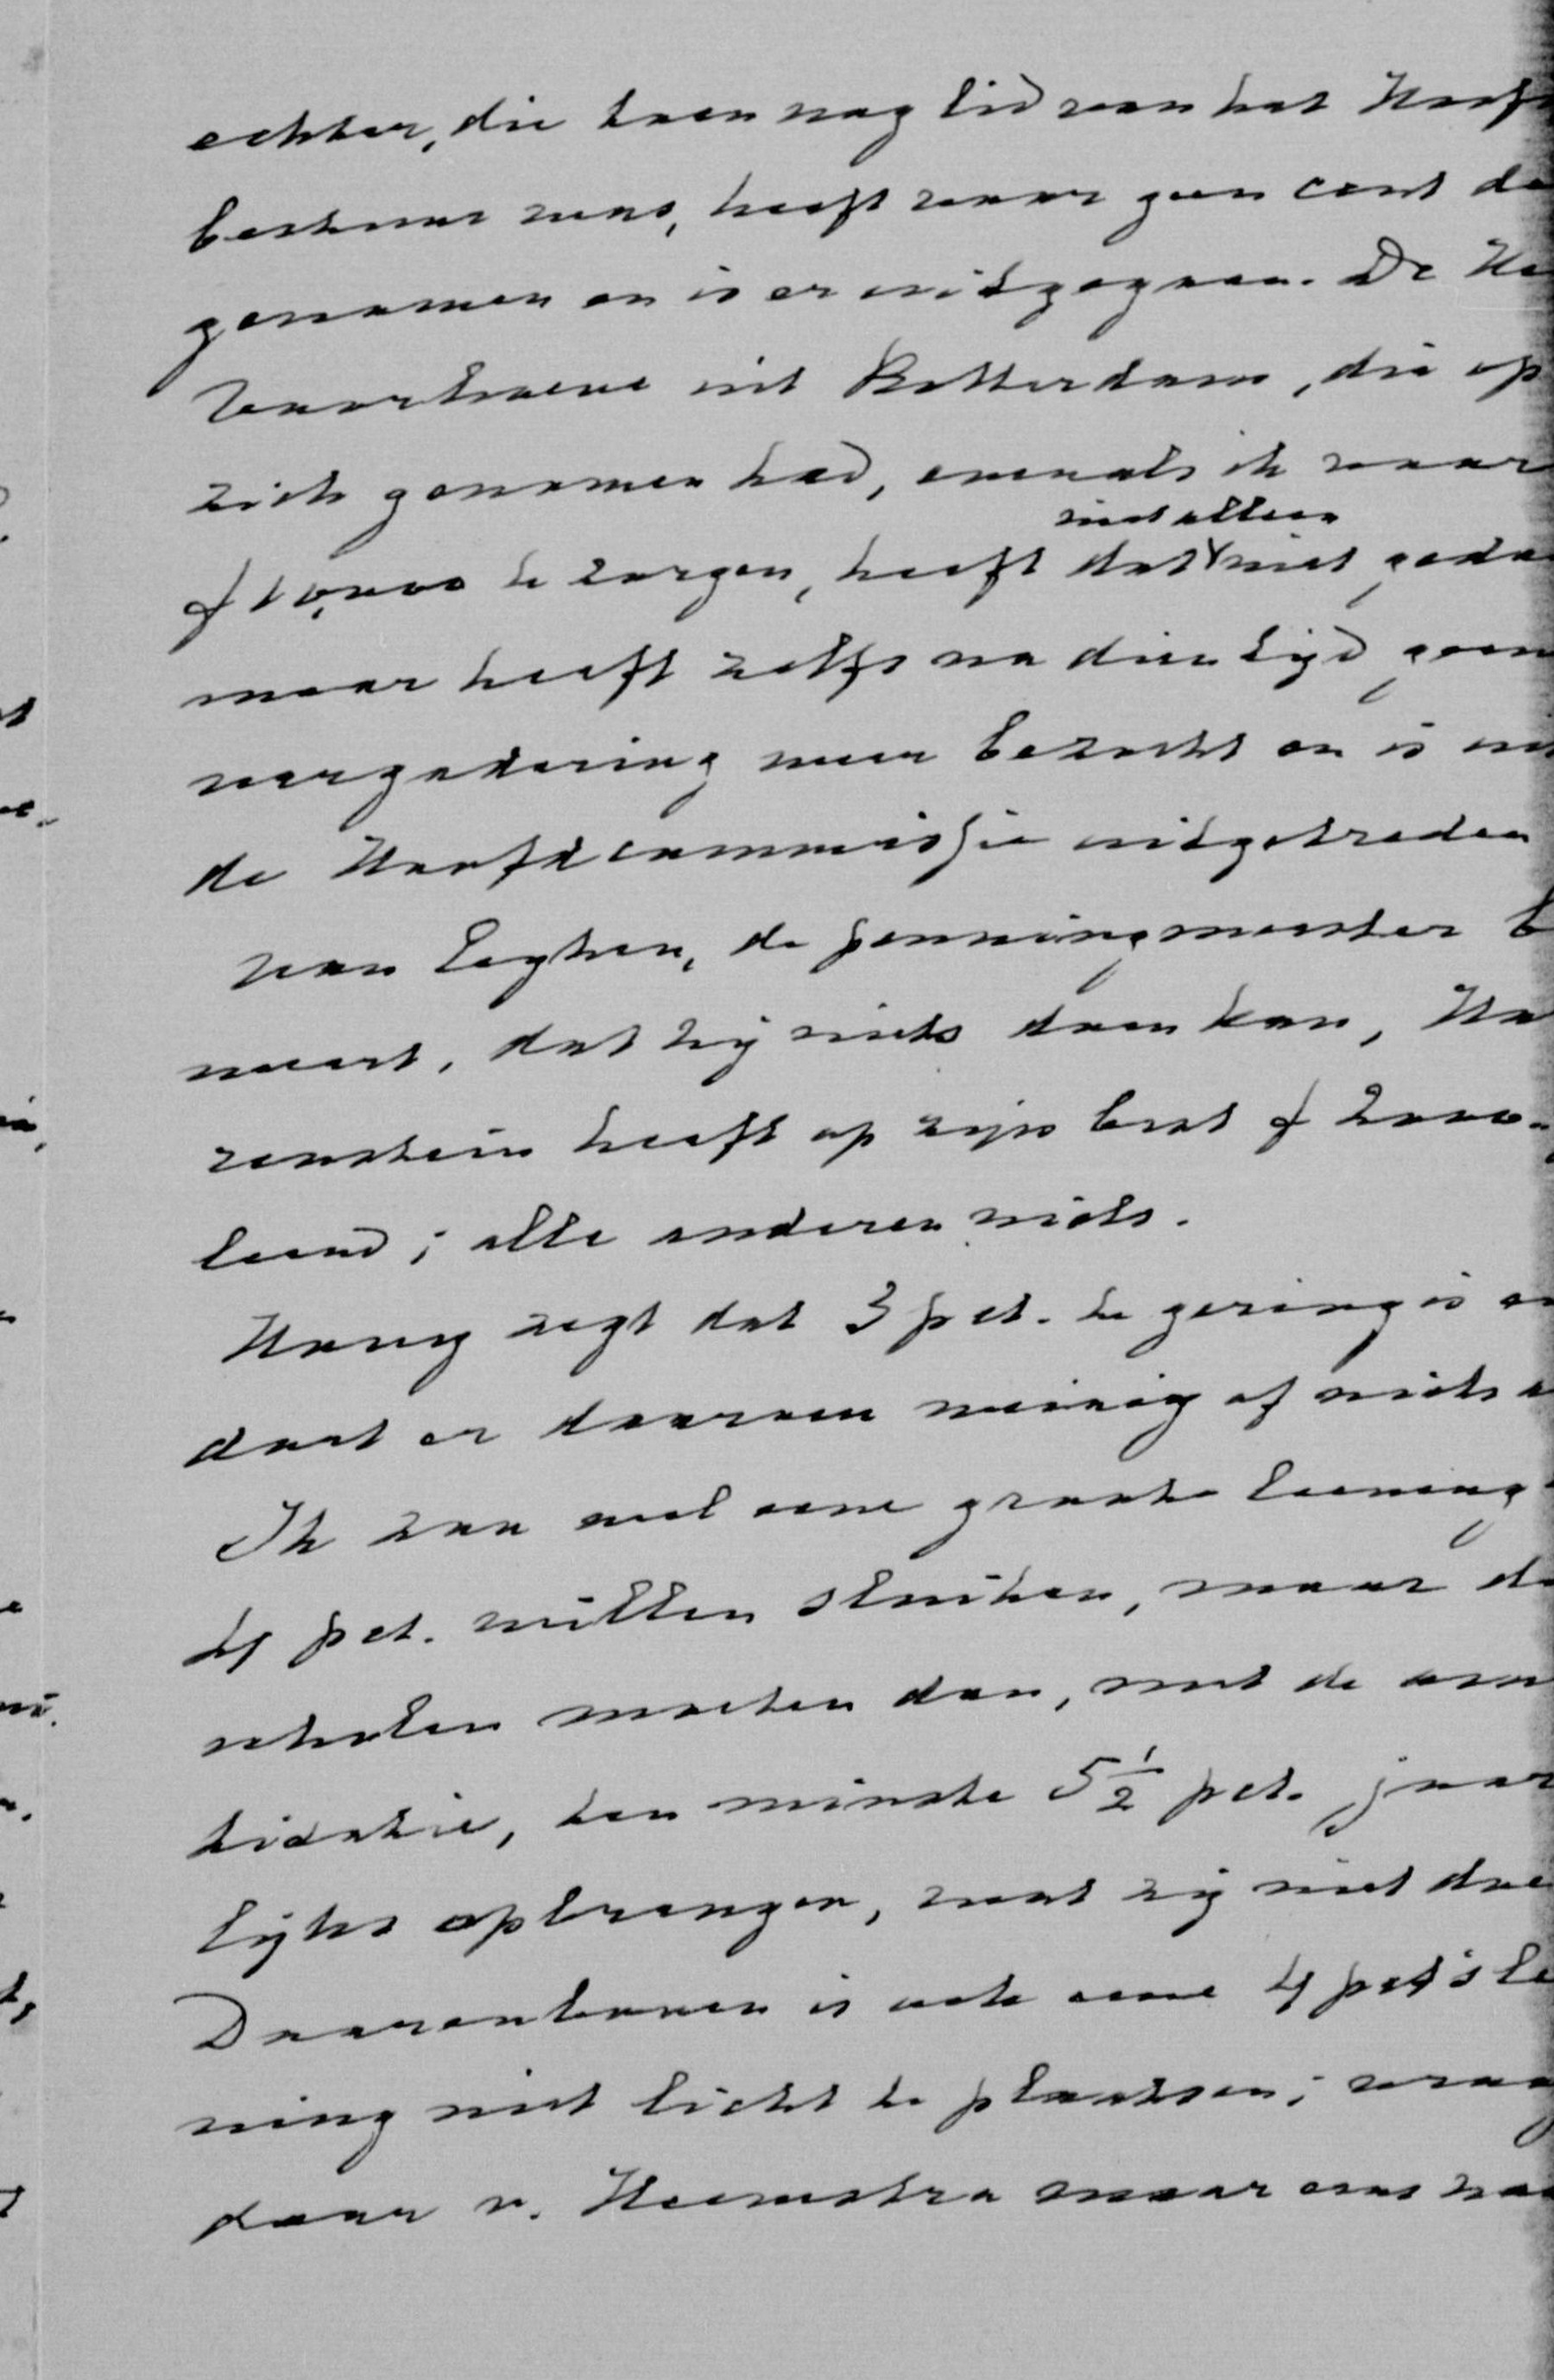 echter, die toen nog lid van het Hoof
bestuur was, heeft voor geen cent de
genomen en is er uitgegaan. De He
Voorhoeve uit Rotterdam, die op
zich genomen had, evenals ik voor
niet alleen
f 10,000 te zorgen, heeft dat niet geda
maar heeft zelfs na dien tijd geen
vergadering meer bezocht en is ui
de Hoofdcommissie uitgetreden
van Eeghen, de penningmeester b
weert, dat hij niets doen kan, Ha
zenstein heeft op zijn best f 2000.
leend; alle anderen niets.
Hovy zegt dat 3 pct. te gering is e
doet er daarom weinig of niets a
Ik zou wel eene groote leening
4 pct. willen sluiten, maar de
scholen moeten dan, met de amor
tisatie, ten minste 5½ pct. jaar
lijks opbrengen, wat zij niet doe
Daarenboven is ook eene 4 pct's le
ning niet licht te plaatsen; vraag
daar v. Heemstra maar eens naa